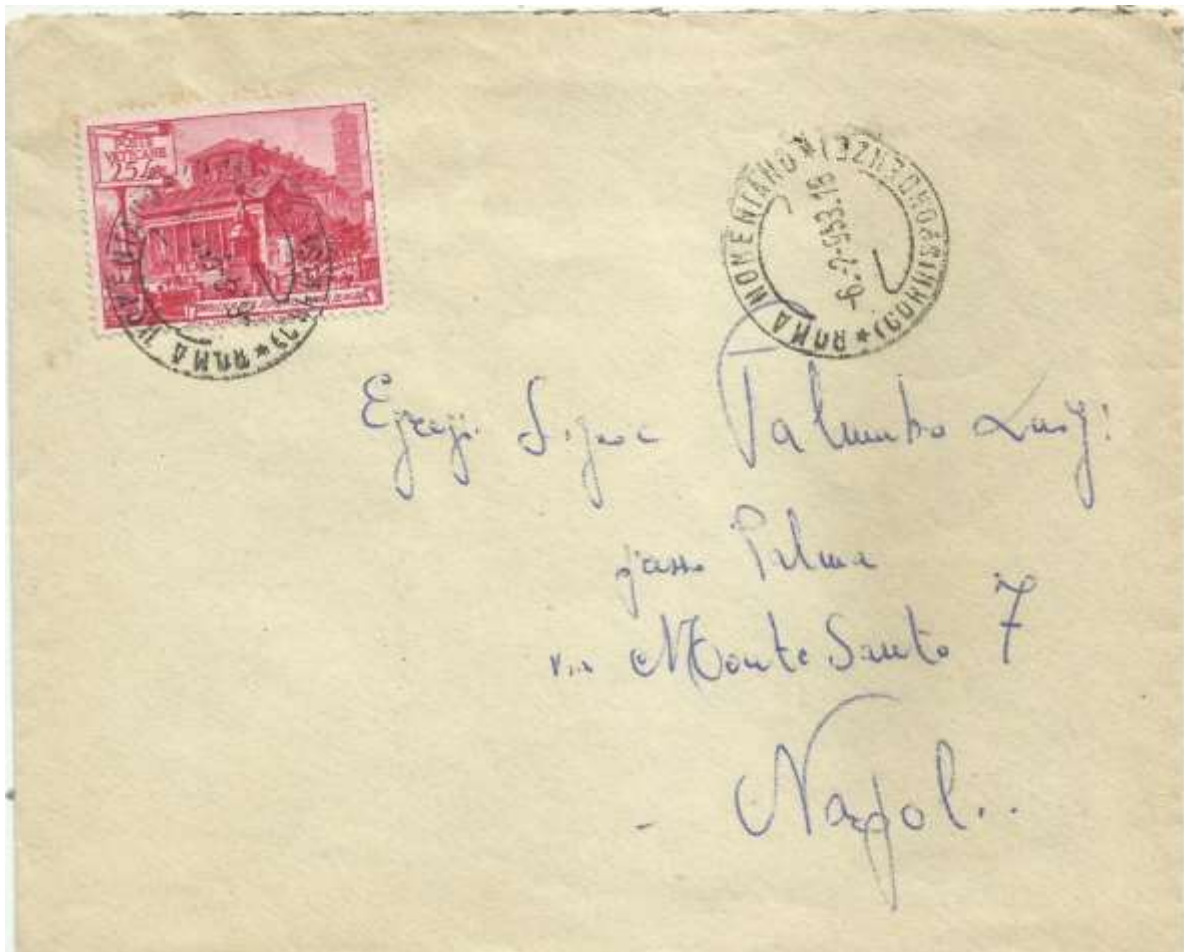 POSTE
VATICANE
25 Lire
ROMA NOMENTANO (CORRISPONDENZE)
6-2-53.16
Egregi Signor Palumbo Luigi
presso Palma
via Monte Santo 7
Napoli